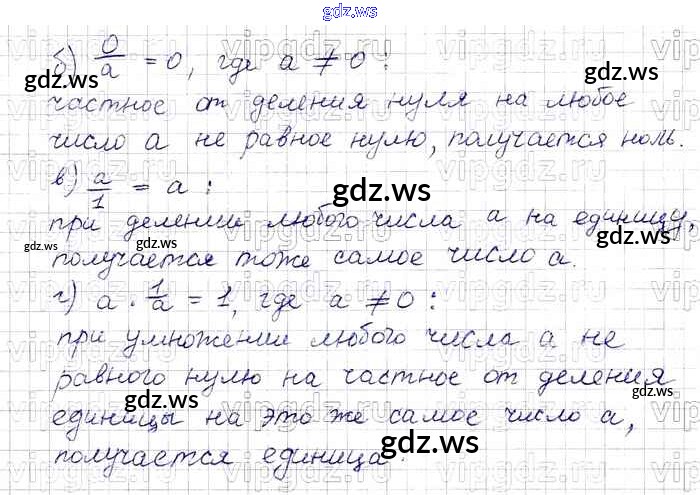 gdz.ws
б) 0/a = 0, где a ≠ 0 :
частное от деления нуля на любое
число a не равное нулю, получается ноль.
в) a/1 = a :
при делении любого числа a на единицу,
получается тоже самое число a.
г) a · 1/a = 1, где a ≠ 0 :
при умножении любого числа a не
равного нулю на частное от деления
единицы на это же самое число a,
получается единица.
gdz.ws
gdz.ws
gdz.ws
gdz.ws
gdz.ws
gdz.ws
gdz.ws
gdz.ws
gdz.ws
gdz.ws
vipgdz.ru